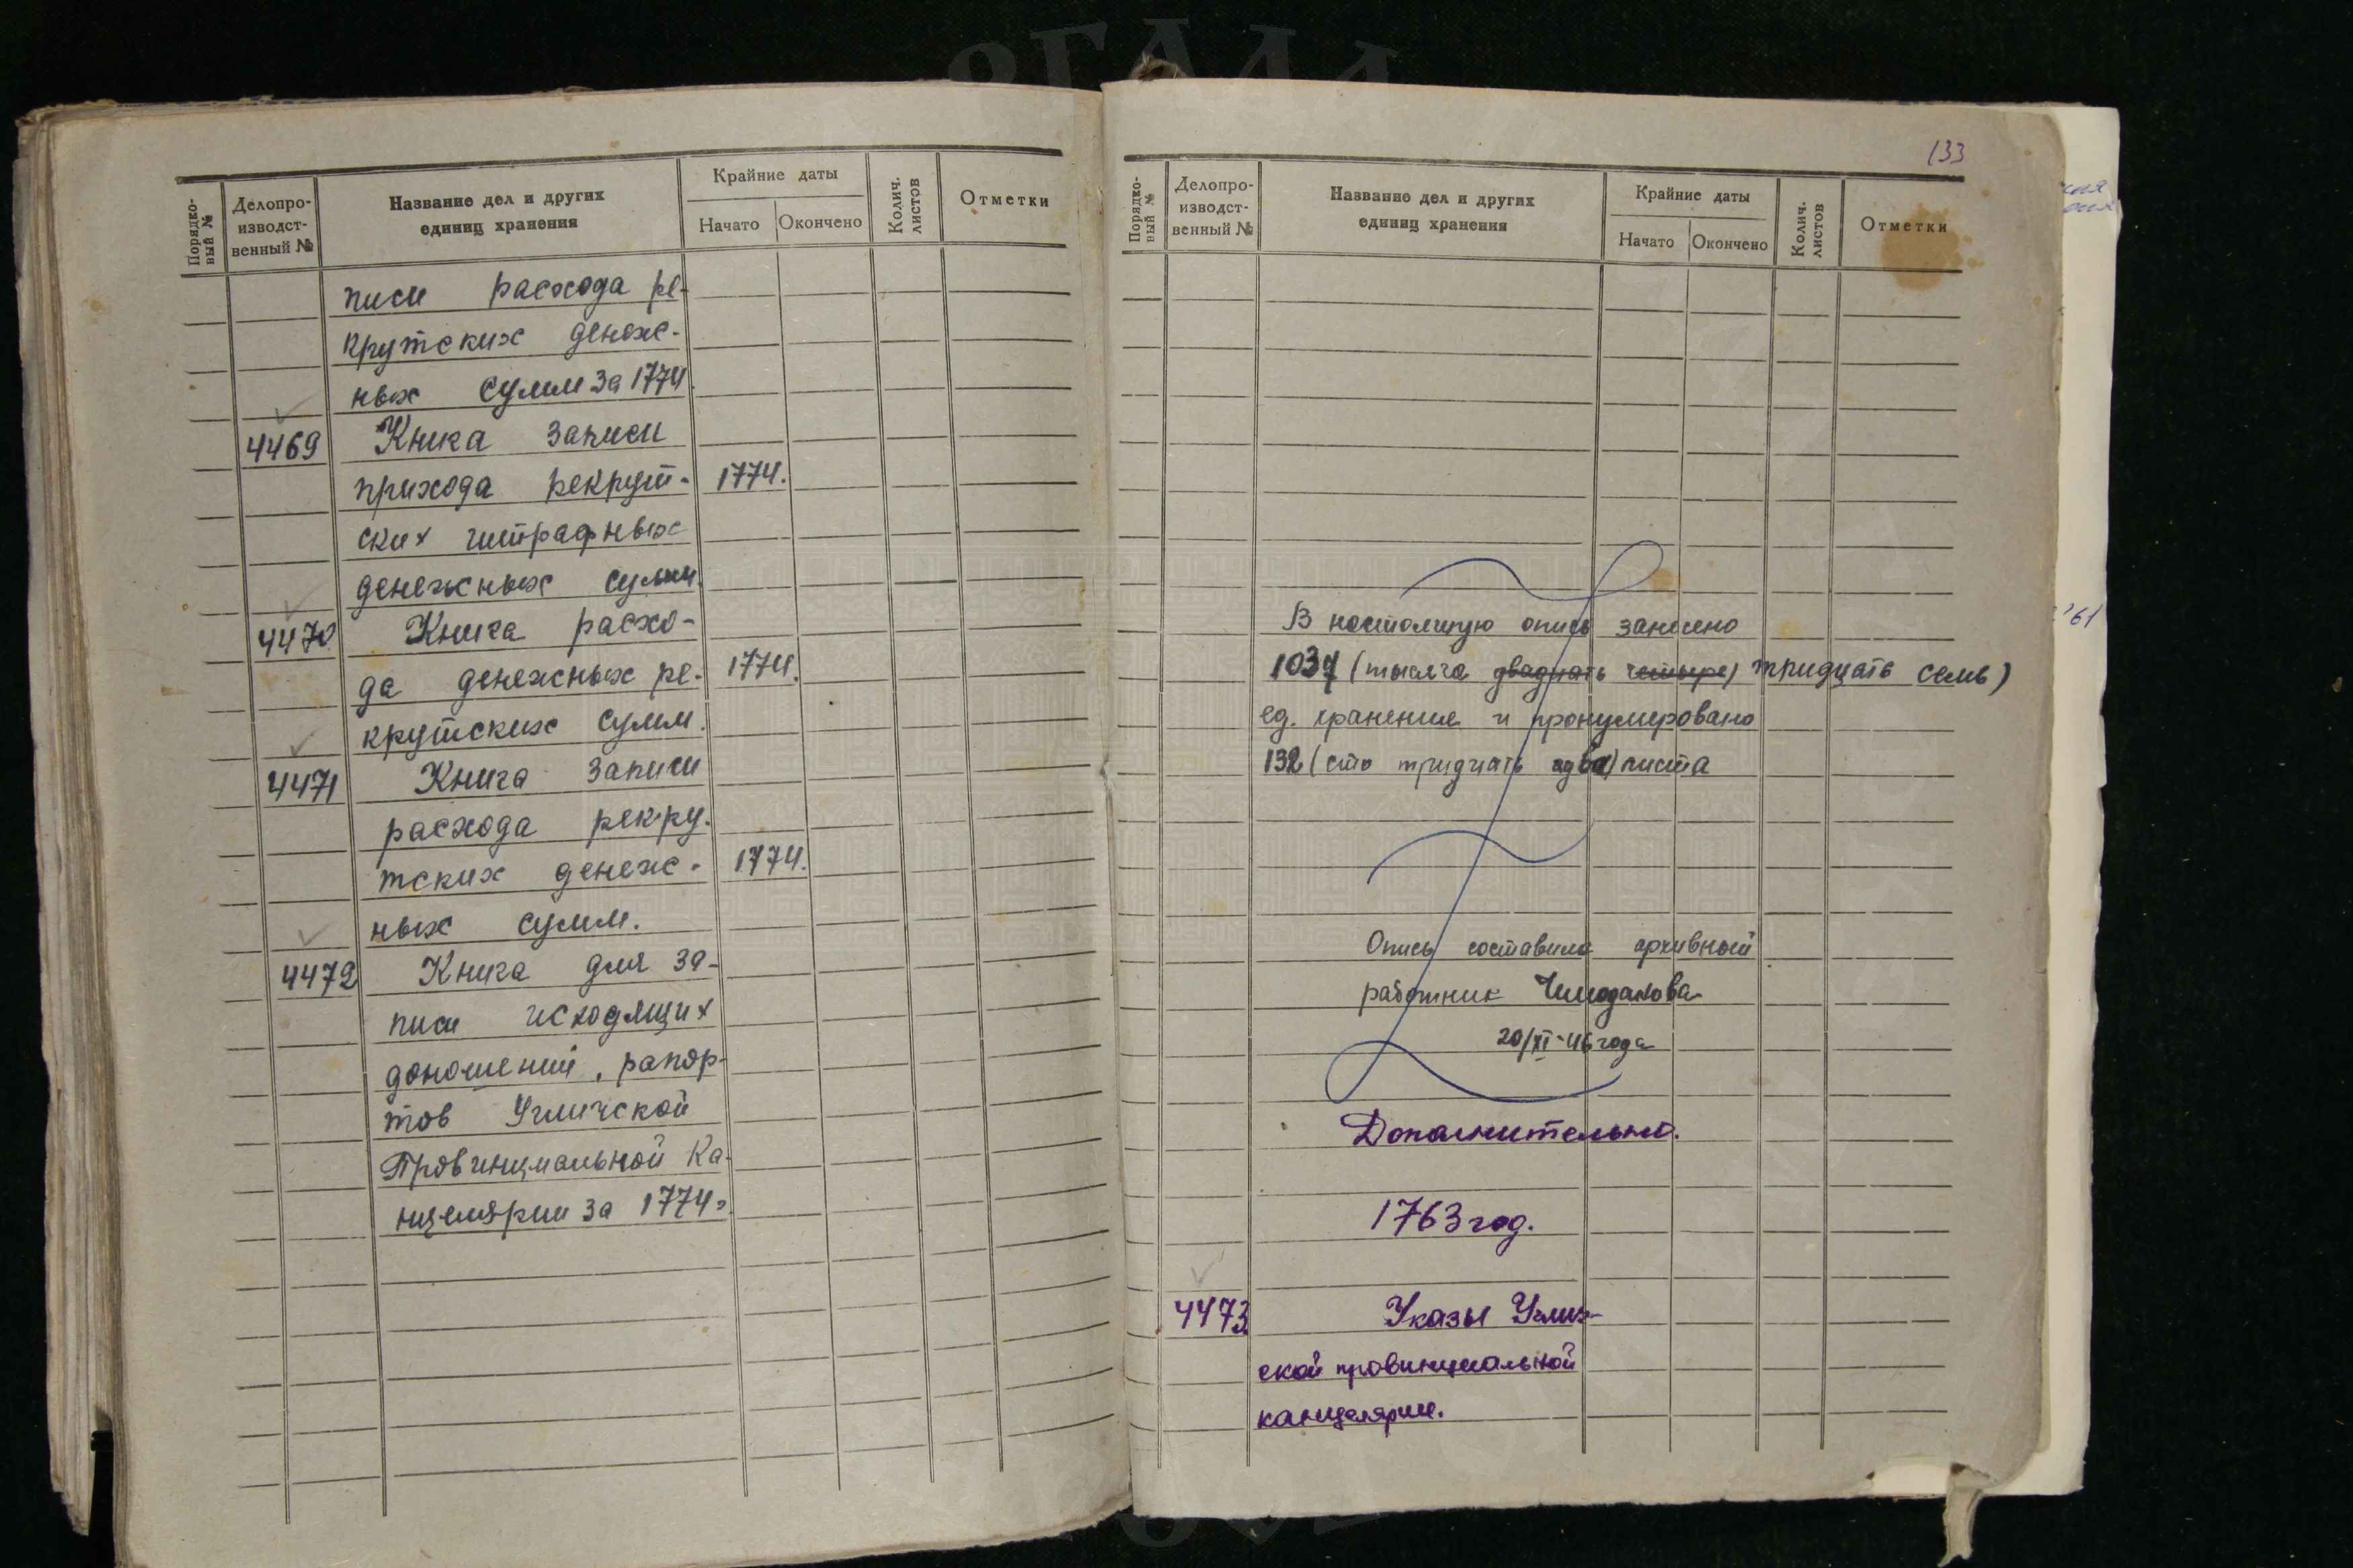 Порядко-
вый №
Делопро-
изводст-
венный №
Название дел и других
единиц хранения
Крайние даты
Начато
Окончено
Колич.
листов
Отметки
писи расхода ре-
крутских денеж-
ных сумм за 1774
4469 Книга записи
прихода рекрут- 1774.
ских штрафных
денежных сумм.
4470 Книга расхо-
да денежных ре- 1774.
крутских сумм.
4471 Книга записи
расхода рекру-
тских денеж- 1774.
ных сумм.
4472 Книга для за-
писи исходящих
доношений, рапор-
тов Угличской
Провинциальной Ка-
нцелярии за 1774г.
133
Порядко-
вый №
Делопро-
изводст-
венный №
Название дел и других
единиц хранения
Крайние даты
Начато
Окончено
Колич.
листов
Отметки
В настоящую опись занесено
1037 (тысяча двадцать четыре) тридцать семь)
ед. хранения и пронумеровано
132 (сто тридцать два) листа
Опись составила архивный
работник Чемоданова
20/XI-46 года
Дополнительно.
1763 год.
4473 Указы Углич-
ской провинциальной
канцелярии.
61
РГАДА